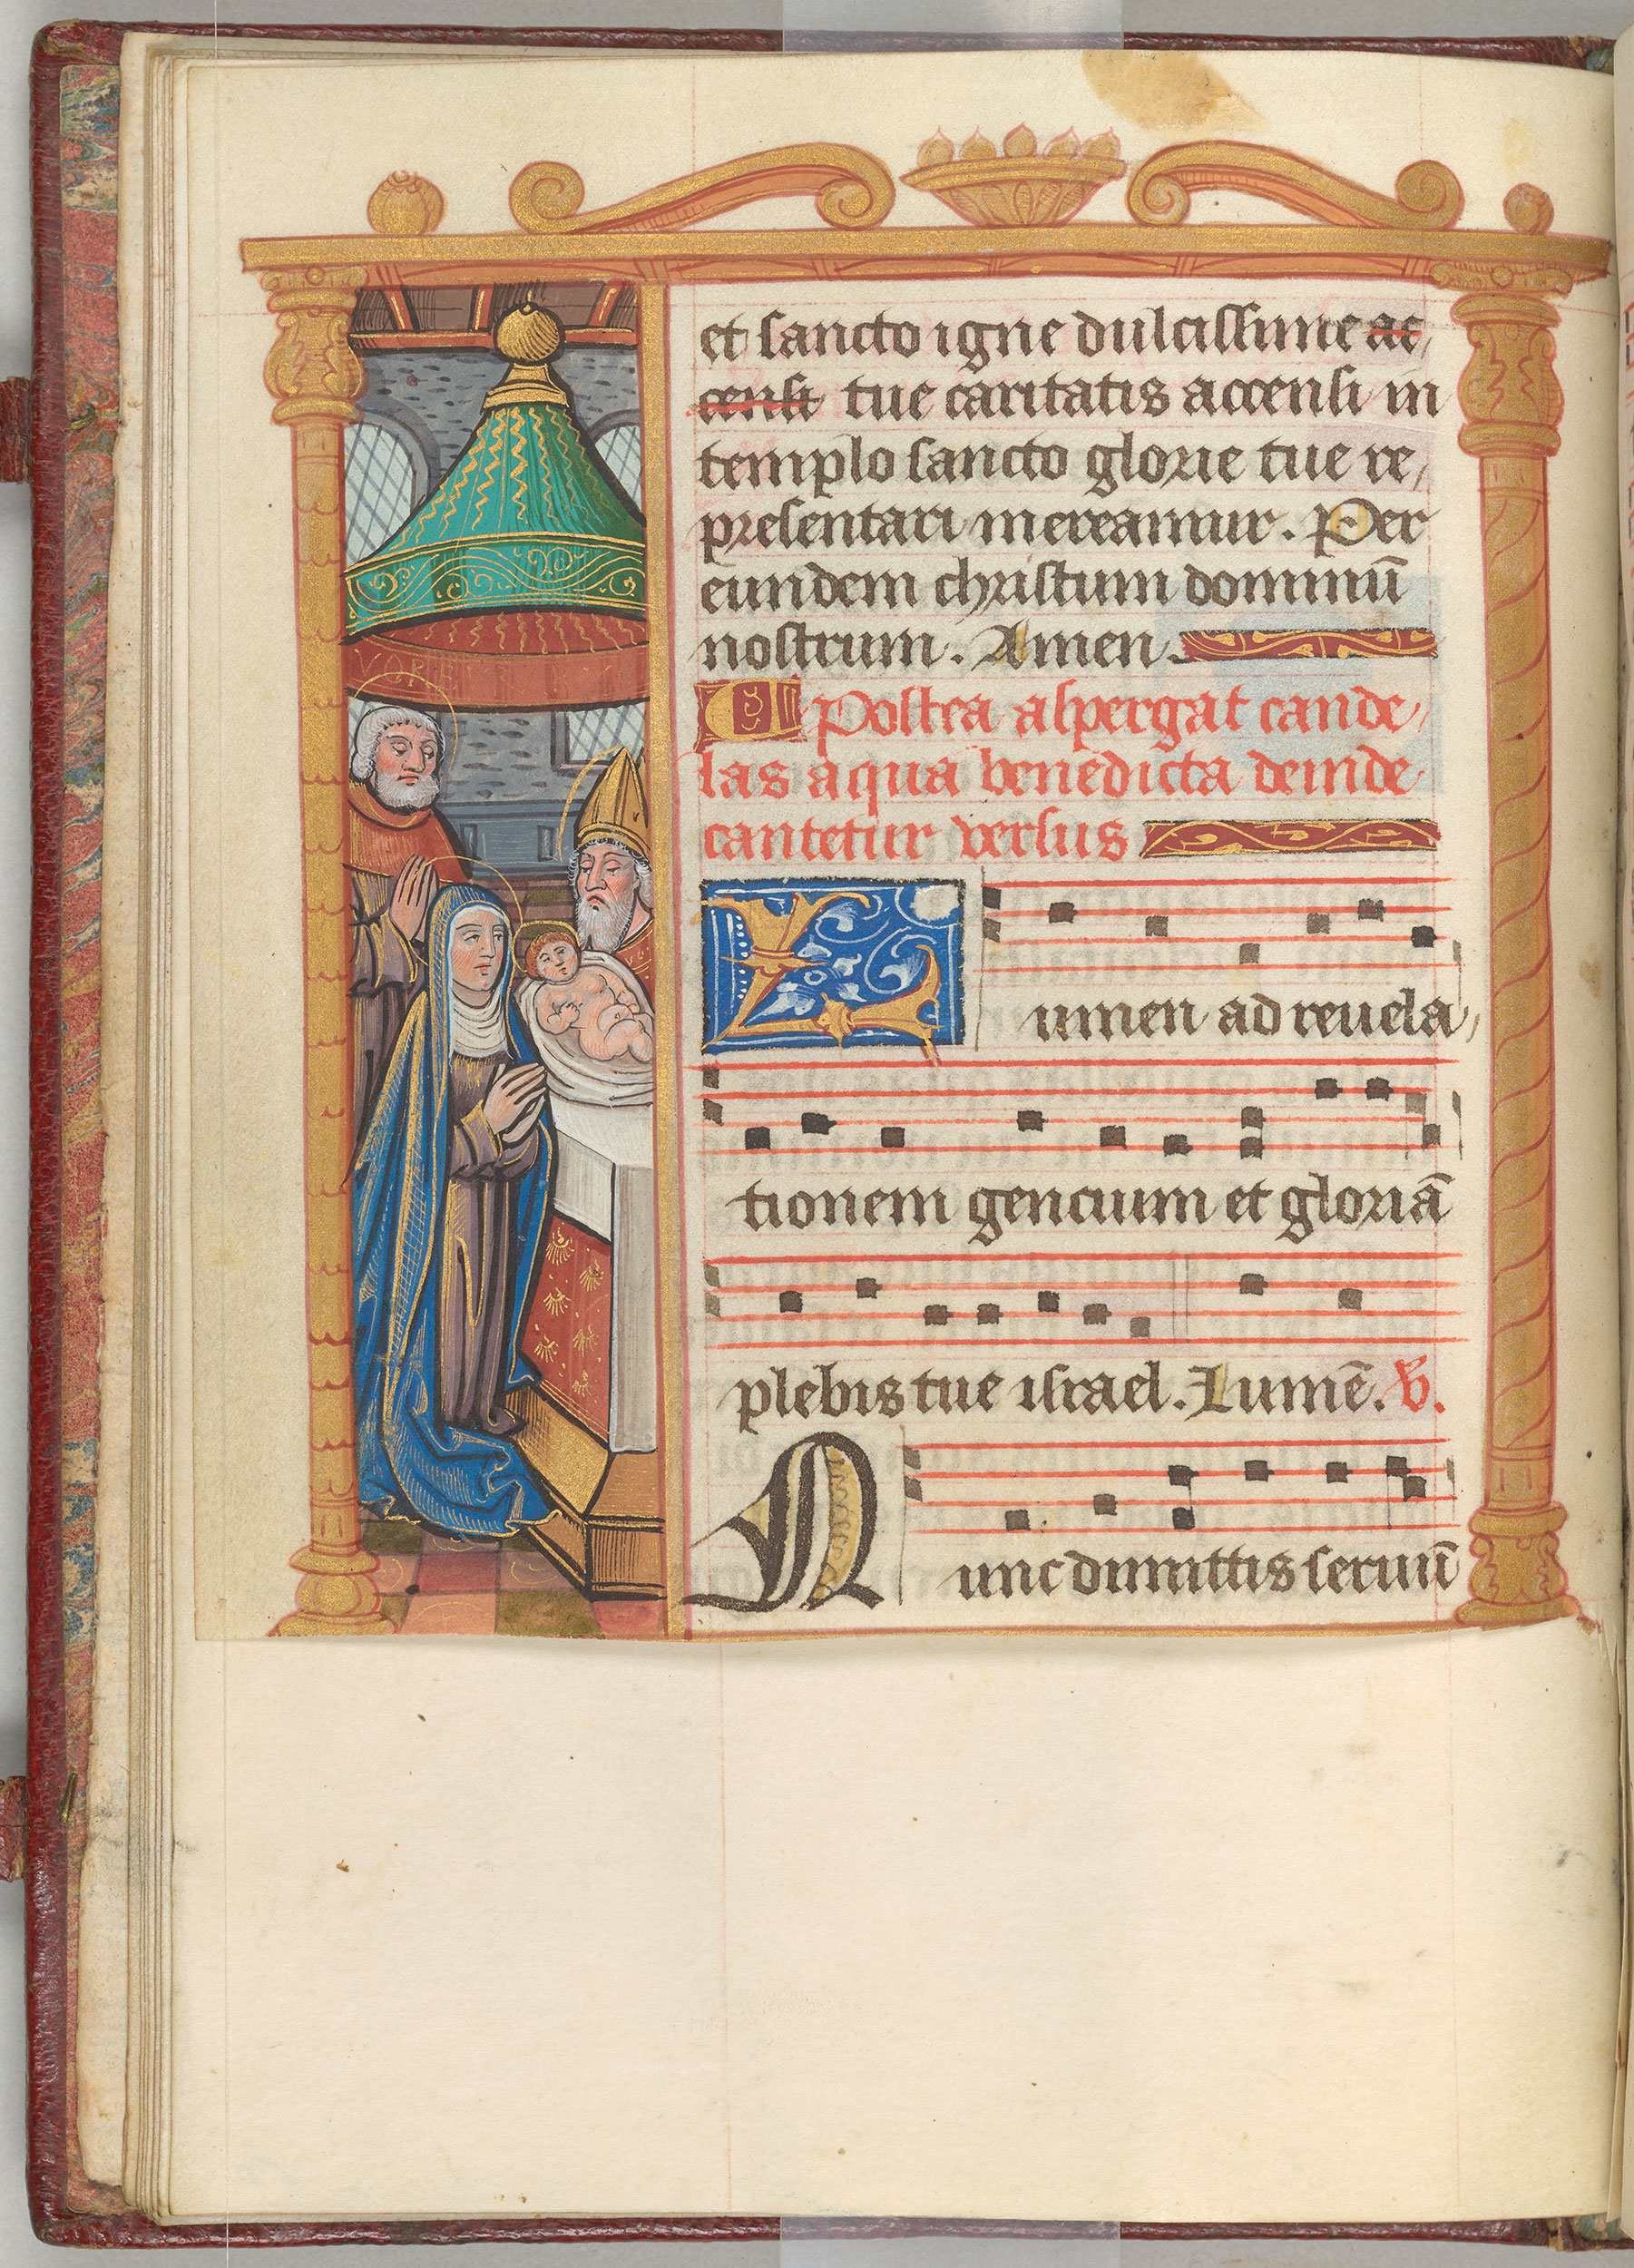 et sancto igne dulcissime ac,
censi tue caritatis accensi in
templo sancto glorie tue re,
presentari mereamur. Per
eundem christum dominū
nostrum. Amen.
Postea aspergat cande,
las aqua benedicta deinde
cantetur versus
Lumen ad reuela,
tionem gencium et gloriā
plebis tue israel. Lumē. V.
Nunc dimittis seruū